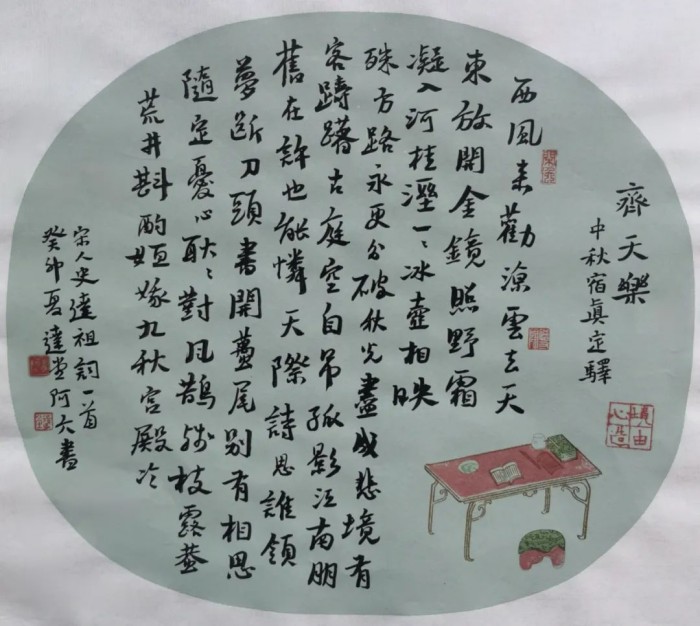 齊天樂
中秋宿真定驛
西風来勸涼雲去天
東放開金鏡照野霜
凝入河桂溼一々冰壺相映
殊方路永更分破秋光盡成悲境有
客躊躇古庭空自弔孤影江南朋
舊在許也能憐天際詩思誰領
夢斷刀頭書開蠆尾别有相思
隨定憂心耿々對風鵲殘枝露蛩
荒井斟酌姮娥九秋宮殿冷
宋人史達祖詞一首
癸卯夏達堂阿六書
境由心造